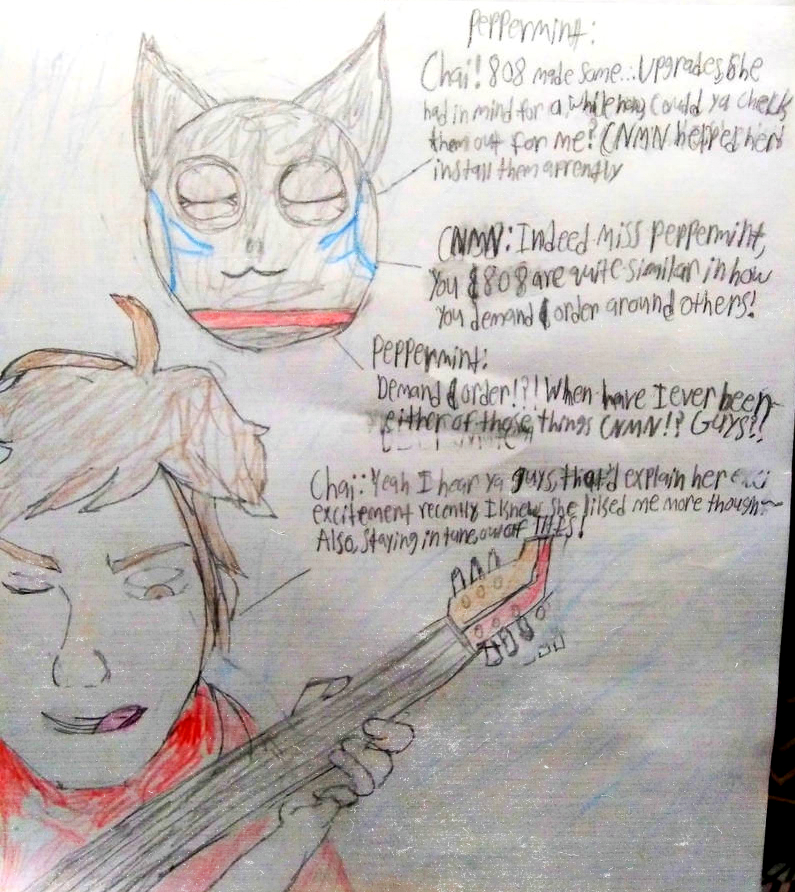 Peppermint:
Chai! 808 made some... Upgrades, She
had in mind for a while now, Could ya check
them out for me? CNMN helped her
install them apprently
CNMN: Indeed Miss Peppermint,
You & 808 are quite similar in how
You demand & order around others!
Peppermint:
Demand & order!?! When have I ever been
either of those things CNMN!? Guys?!
Chai: Yeah I hear ya guys, that'd explain her
excitement recently I knew she liked me more though~
Also, Staying in tune, out of THIS!